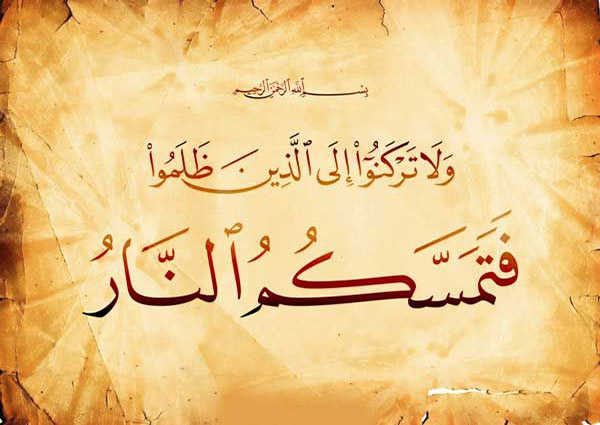 بِسْمِ ٱللَّهِ ٱلرَّحْمَٰنِ ٱلرَّحِيمِ
وَلَا تَرْكَنُوٓا۟ إِلَى ٱلَّذِينَ ظَلَمُوا۟
فَتَمَسَّكُمُ ٱلنَّارُ